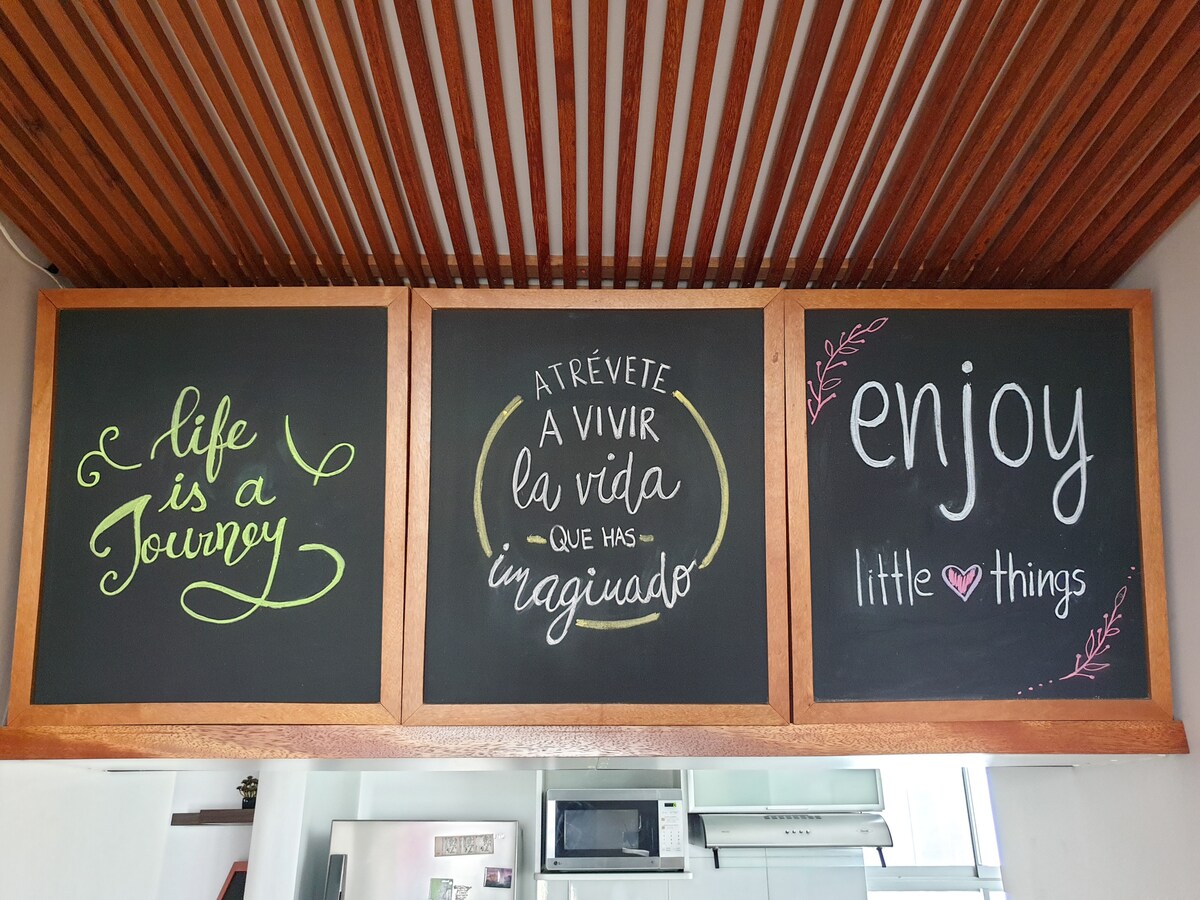 life
is a
Journey
ATRÉVETE
A VIVIR
la vida
QUE HAS
imaginado
enjoy
little things